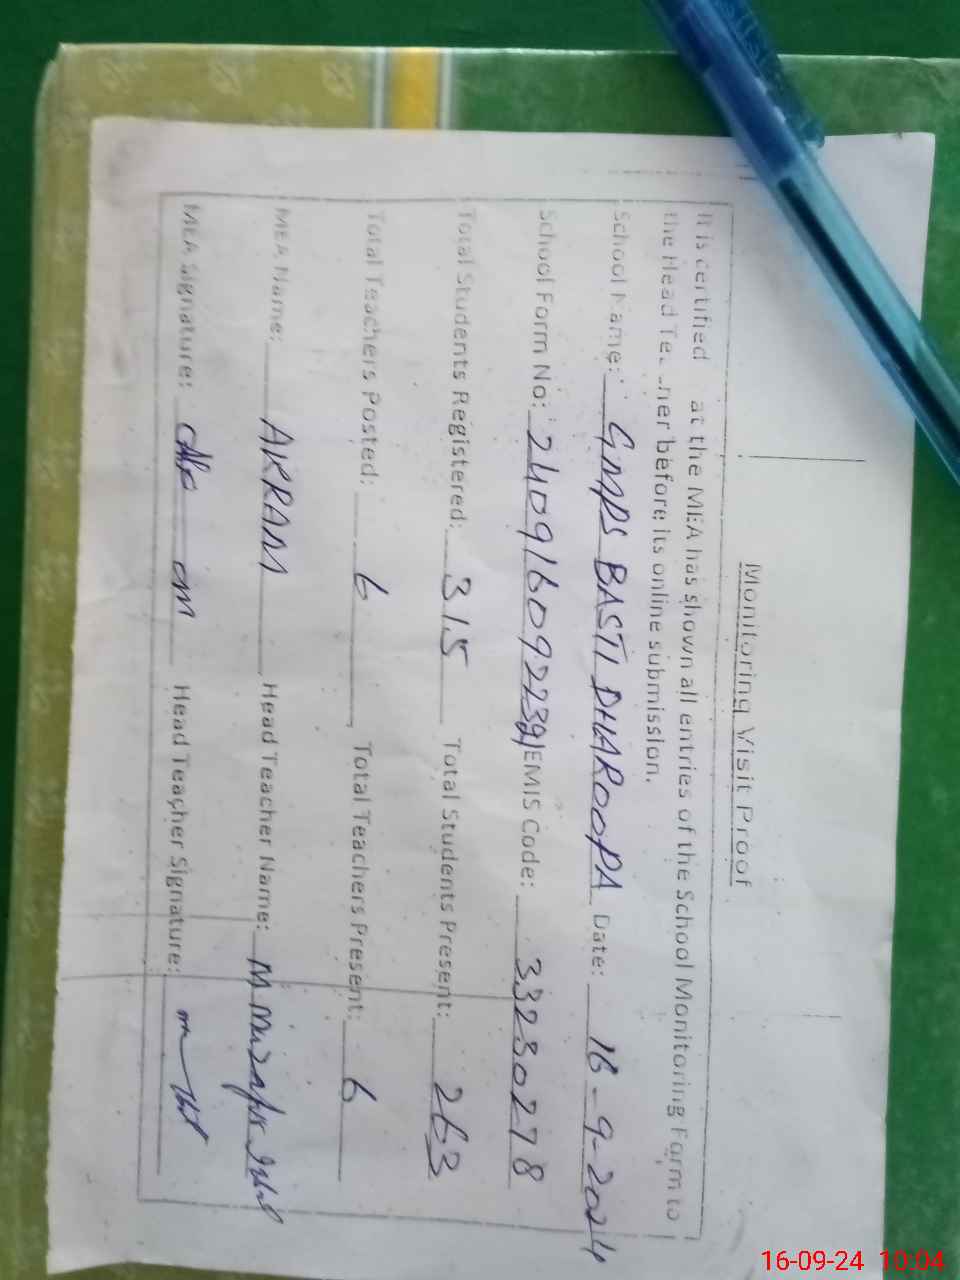 Monitoring Visit Proof
It is certified at the MEA has shown all entries of the School Monitoring Form to
the Head Te. .her before its online submission.
School Name: GMPS BASTI DHAROOPA Date: 16-9-2024
School Form No: EMIS Code: 33230278
Total Students Registered: 315 Total Students Present: 263
Total Teachers Posted: 6 Total Teachers Present: 6
MEA Name: AKRAM Head Teacher Name: M
MEA Signature: Head Teacher Signature:
16-09-24 10:04